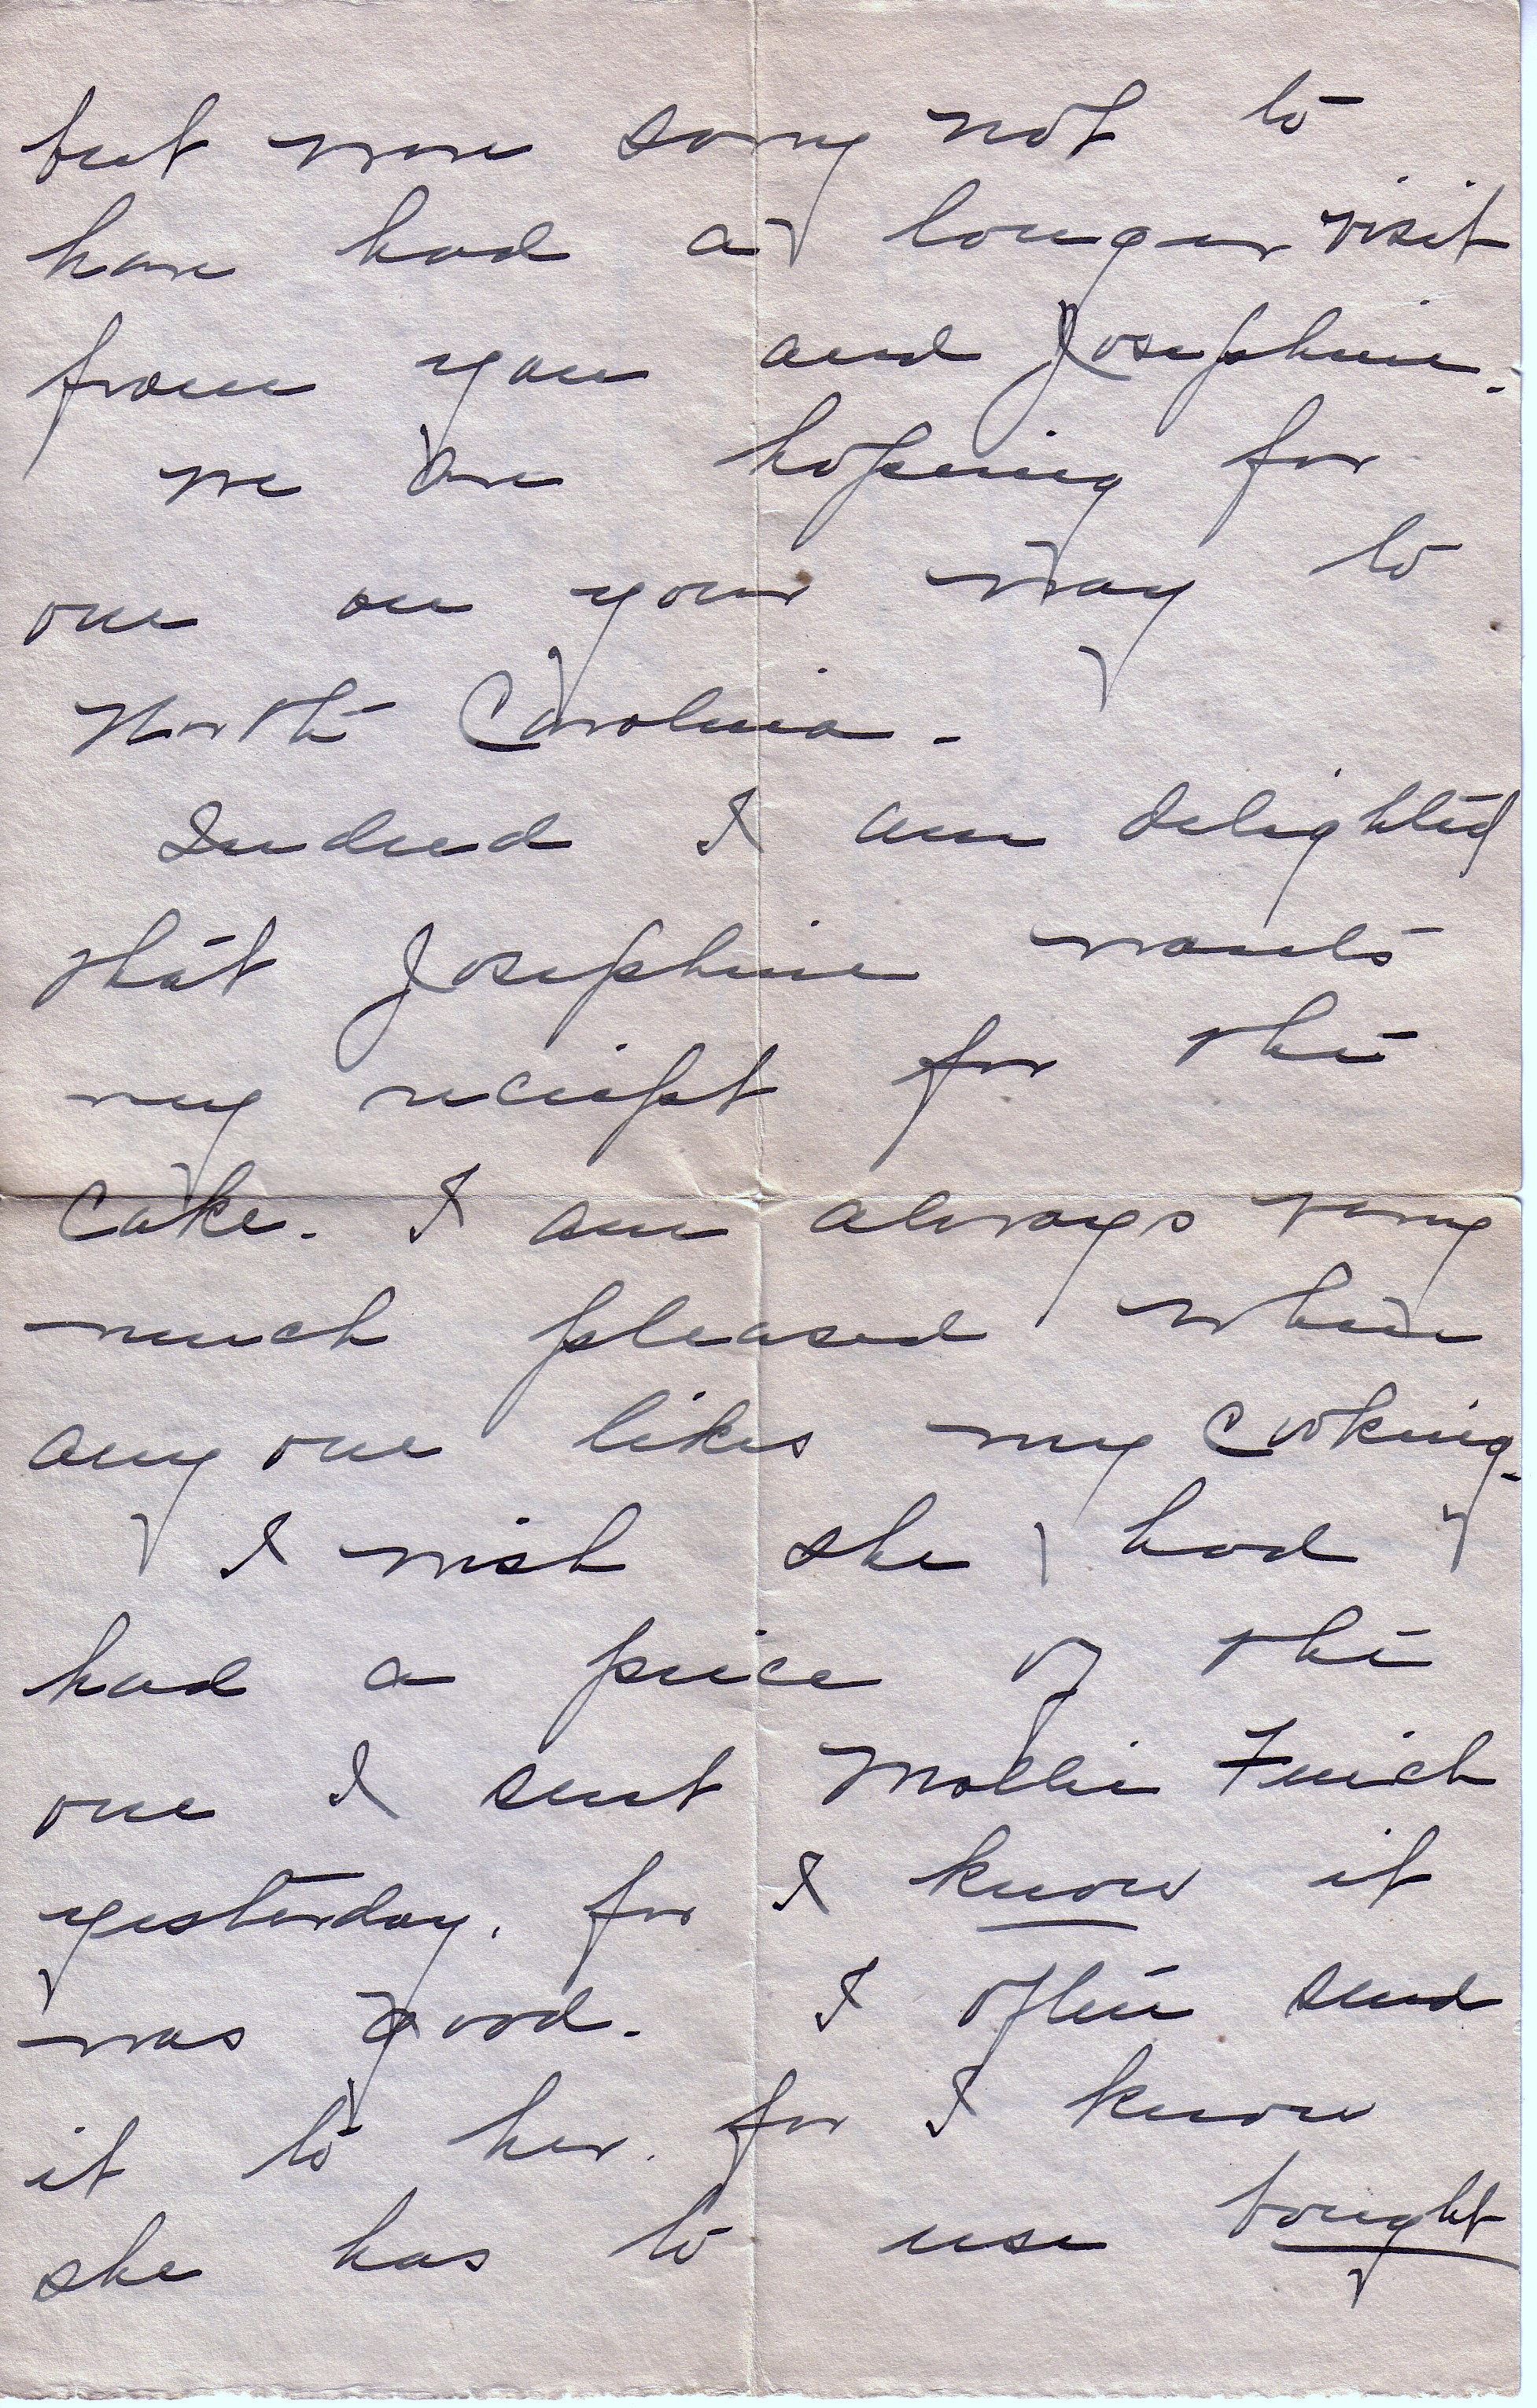 but were sorry not to
have had a longer visit
from you and Josephine.
we are hoping for
one on your way to
North Carolina -
Indeed I am delighted
that Josephine wants
my receipt for the
Cake. I am always very
much pleased when
any one likes my cooking -
I wish she had
had a piece of the
one I sent Mollie Finich
yesterday, for I know it
was good. I often send
it to her, for I know
she has to use bought